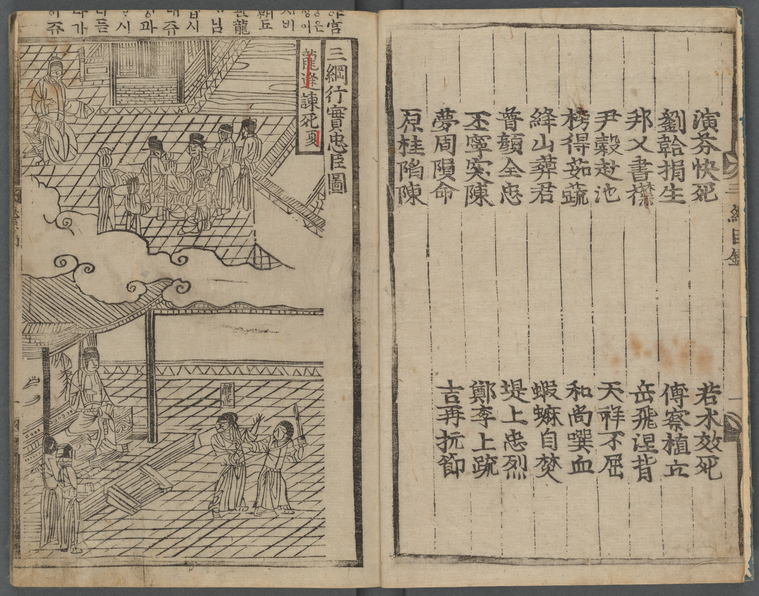 演芬快死 若水效死
劉韐捐生 傅察植立
邦乂書襟 岳飛涅背
尹穀赴池 天祥不屈
枋得茹蔬 和尚噀血
絳山葬君 蝦蟆自焚
普顔全忠 堤上忠烈
丕寧突陳 鄭李上疏
夢周隕命 吉再抗節
原桂陷陳
三綱行實忠臣圖
龍逄諫死 夏